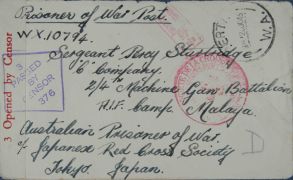 Prisoner of War Post.
WX.10794.
Sergeant Percy Sturtridge
"C" Company.
2/4 Machine Gun Battalion
A.I.F. Camp Malaya
Australian Prisoner of War,
c/- Japanese Red Cross Society
Tokyo. Japan.
3 Opened by Censor
3
PASSED
BY
CENSOR
376
PERTH
W.A.
D